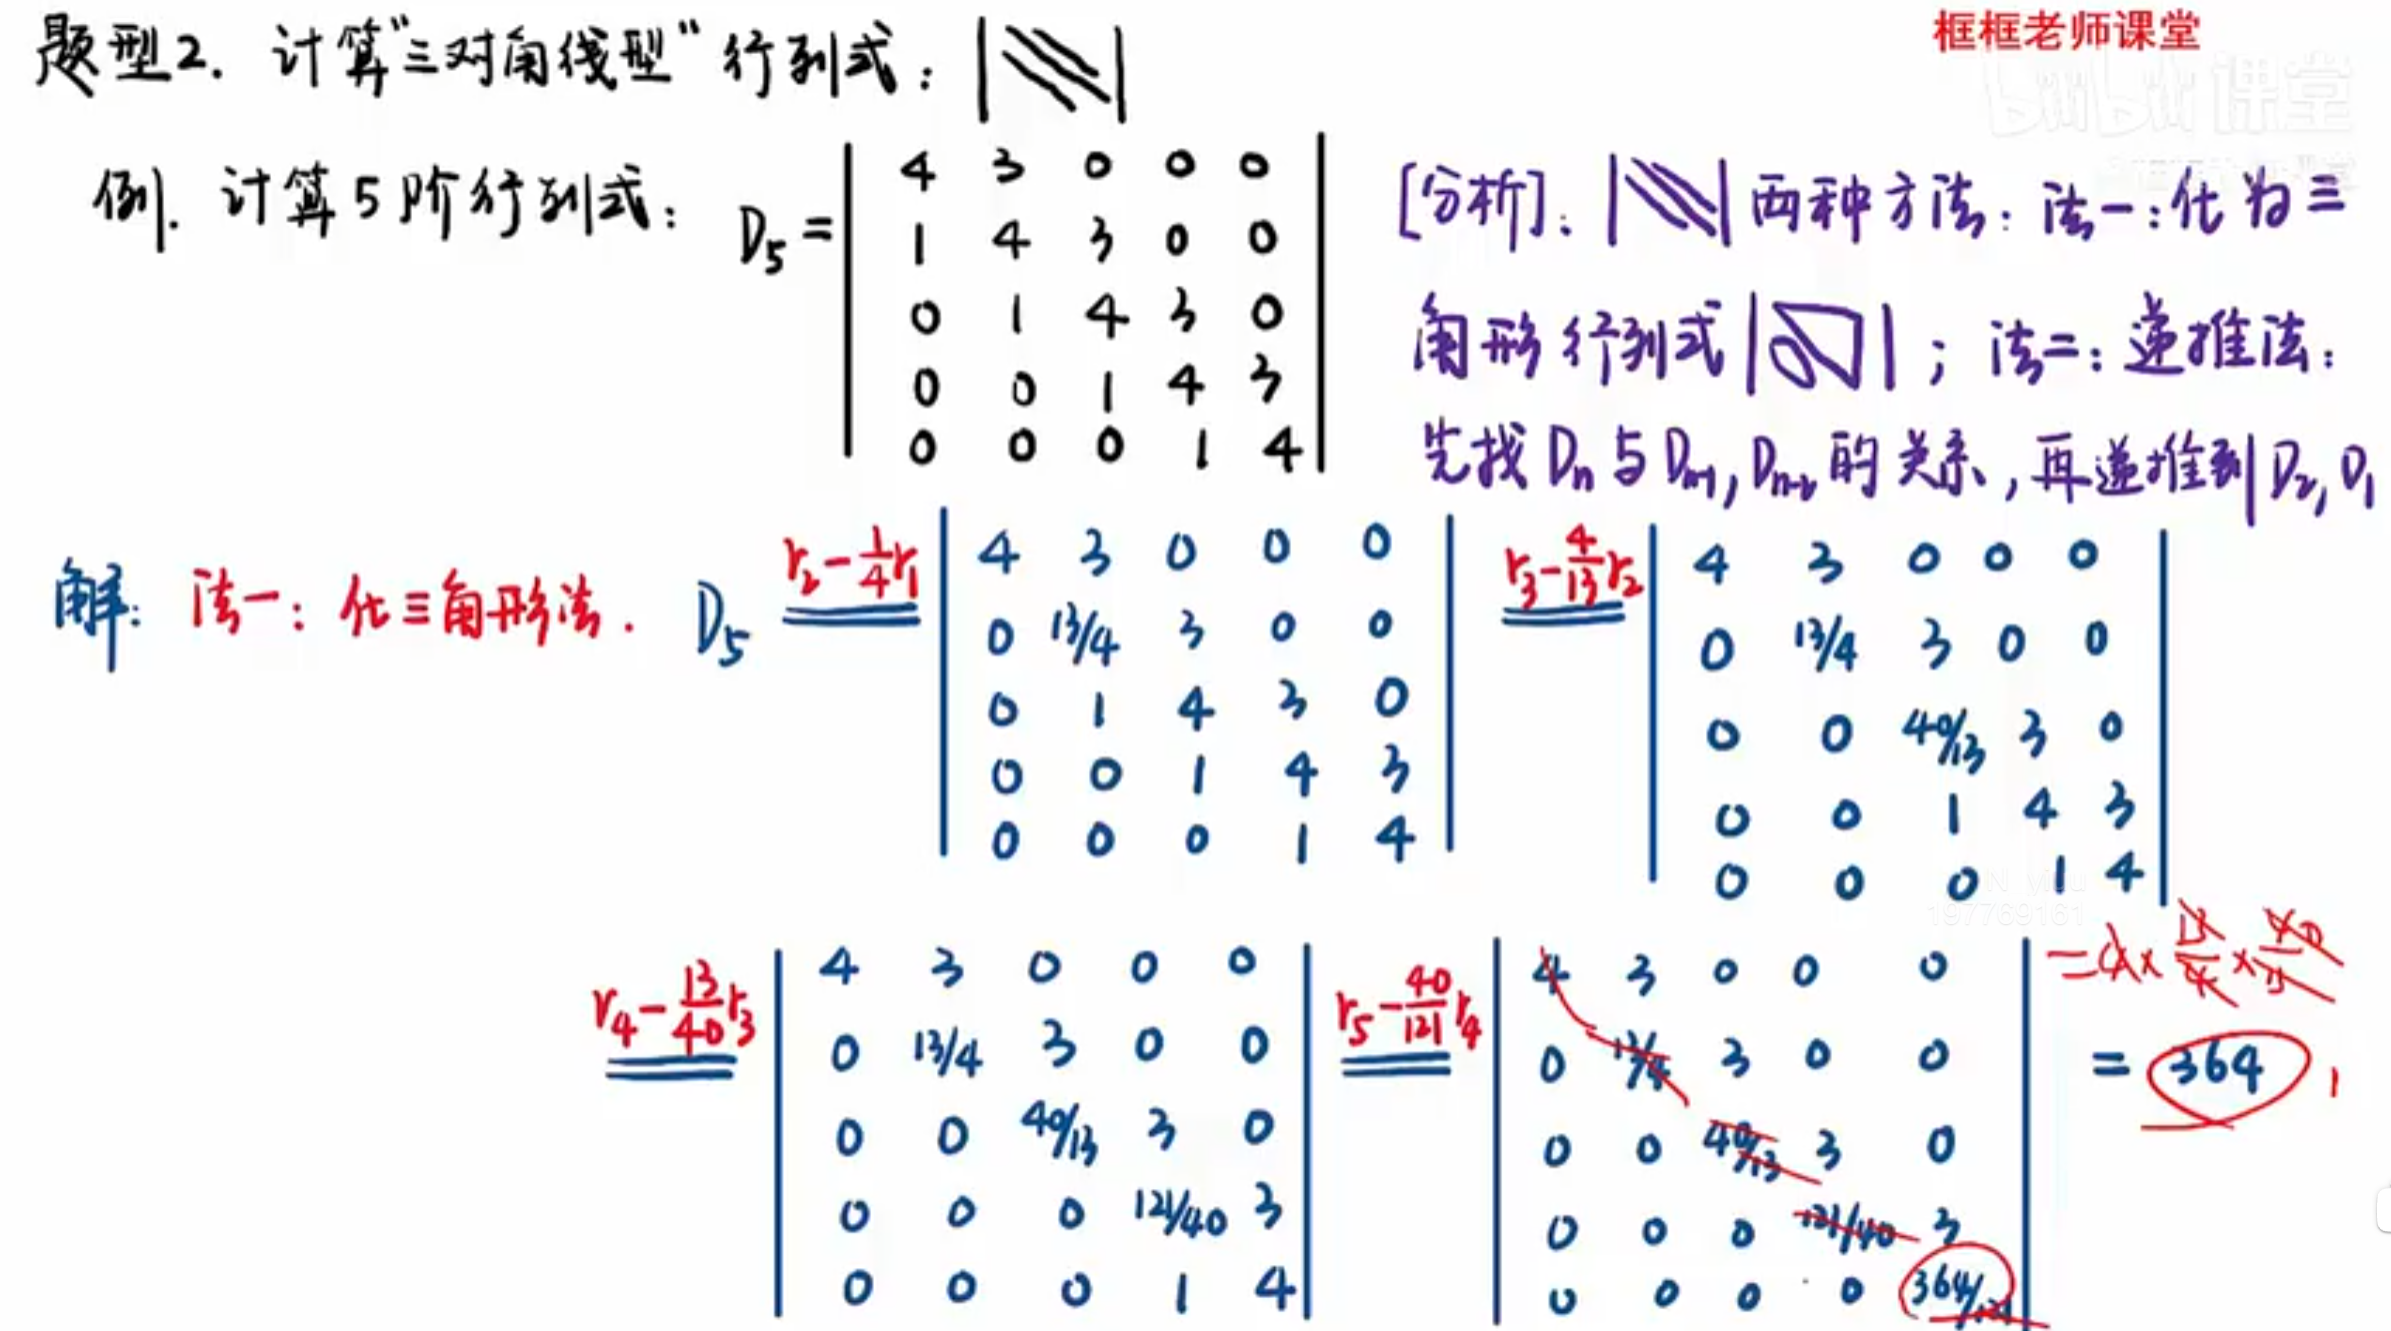 框框老师课堂
bilibili 课堂
题型2. 计算"三对角线型"行列式：
例. 计算5阶行列式： D₅ =
4 3 0 0 0
1 4 3 0 0
0 1 4 3 0
0 0 1 4 3
0 0 0 1 4
[分析]：两种方法：法一：化为三
角形行列式；法二：递推法：
先找 Dn 与 Dn-1, Dn-2 的关系，再递推到 D₂, D₁
解：法一：化三角形法. D₅
r₂ - 1/4 r₁
4 3 0 0 0
0 13/4 3 0 0
0 1 4 3 0
0 0 1 4 3
0 0 0 1 4
r₃ - 4/13 r₂
4 3 0 0 0
0 13/4 3 0 0
0 0 40/13 3 0
0 0 1 4 3
0 0 0 1 4
197769161
r₄ - 13/40 r₃
4 3 0 0 0
0 13/4 3 0 0
0 0 40/13 3 0
0 0 0 121/40 3
0 0 0 1 4
r₅ - 40/121 r₄
4 3 0 0 0
0 13/4 3 0 0
0 0 40/13 3 0
0 0 0 121/40 3
0 0 0 0 364/121
= 4 × 13/4 × 40/13
= 364